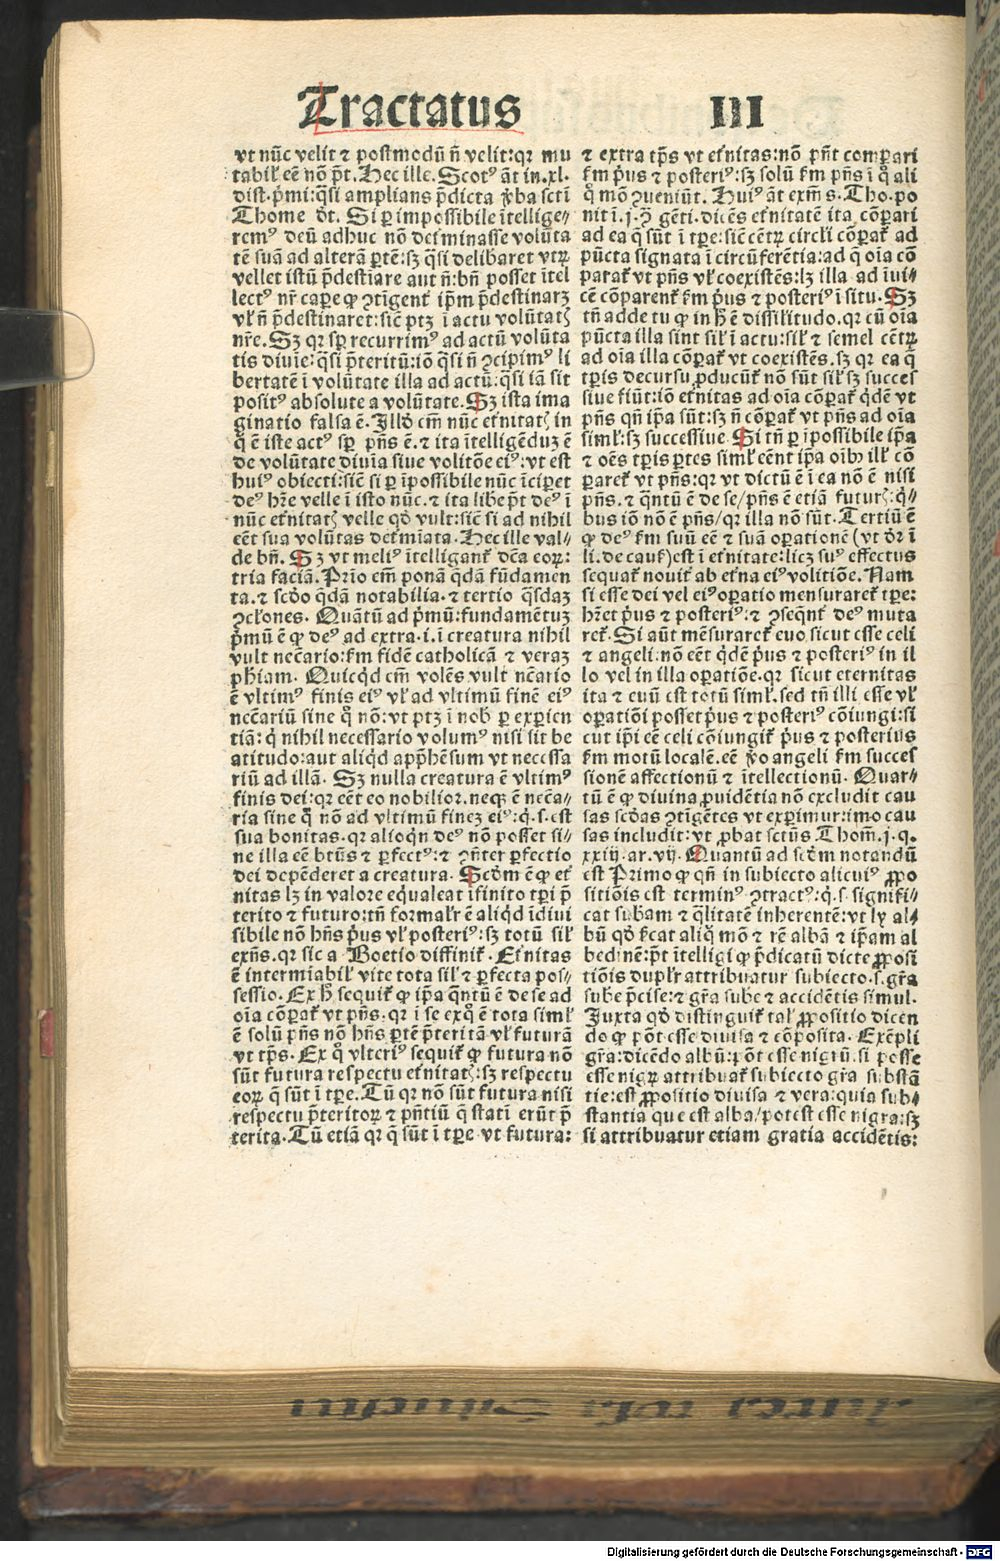 Tractatus III
vt nūc velit ⁊ postmodū n̄ velit: qꝛ mu
tabil' eē nō p̄t. Hec ille. Scotꝰ āt in .xl.
dist. p̄mi: q̄si amplians p̄dicta v̓ba sctī
Thome dt̄. Si ꝑ impossibile ītellige⸗
remꝰ deū adhuc nō det̓minasse volūta
tē suā ad alterā ꝑtē: sꝫ q̄si delibaret vtꝝ
vellet istū p̄destīare aut n̄: bn̄ posset ītel
lectꝰ nr̄ caꝑe ꝙ ꝯtīgent̓ ip̄m p̄destinarꝫ
vl' n̄ p̄destinaret: sic̄ ptꝫ ī actu volūtatꝭ
nr̄e. Sꝫ qꝛ sꝑ recurrimꝰ ad actū volūta
tis diuīe: q̄si p̄teritū: iō q̄si n̄ ꝯcipimꝰ li
bertatē ī volūtate illa ad actū: q̄si iā sit
positꝰ absolute a volūtate. Sꝫ ista ima
ginatio falsa ē. Illd̓ em̄ nūc et̓nitatꝭ in
q̄ ē iste actꝰ sꝑ pn̄s ē. ⁊ ita ītelligēduꝫ ē
de volūtate diuīa siue volitōe eiꝰ: vt est
huiꝰ obiecti: sic̄ si ꝑ īpossibile nūc īciꝑet
deꝰ hr̄e velle ī isto nūc. ⁊ ita libe p̄t deꝰ ī
nūc et̓nitatꝭ velle qd̓ vult: sic̄ si ad nihil
eēt sua volūtas det̓miata. Hec ille val⸗
de bn̄. Sꝫ vt meliꝰ ītelligant̓ dc̄a eoꝝ:
tria faciā. Prīo em̄ ponā q̄dā fūdamen
ta. ⁊ scd̓o q̄dā notabilia. ⁊ tertio q̄sdaꝫ
ꝯcl'ones. Quātū ad p̄mū: fundamētuꝫ
p̄mū ē ꝙ deꝰ ad extra .i. ī creatura nihil
vult nec̄ario: fm̄ fidē catholicā ⁊ veraꝫ
ph̄iam. Quicqd̓ em̄ volēs vult nc̄ario
ē vltimꝰ finis eiꝰ vl' ad vltimū finē eiꝰ
nec̄ariū sine q̊ nō: vt ptꝫ ī nob̓ ꝑ exꝑien
tiā: q̓ nihil necessario volumꝰ nisi sit be
atitudo: aut aliqd̓ app̄hēsum vt necessa
riū ad illā. Sꝫ nulla creatura ē vltimꝰ
finis dei: qꝛ eēt eo nobilior. neqꝫ ē nc̄ēa⸗
ria sine q̊ nō ad vltimū fineꝫ eiꝰ: q̓.s. est
sua bonitas. qꝛ alioqn̓ deꝰ nō posset si⸗
ne illa eē btūs ⁊ ꝑfectꝰ: ⁊ ꝯn̄ter ꝑfectio
dei depēderet a creatura. Scd̓m ē ꝙ et̓
nitas lꝫ in valore eq̄ualeat īfinito tꝑi p̄
terito ⁊ futuro: tn̄ formal'r ē aliqd̓ īdiui
sibile nō hn̄s p̓us vl' posteriꝰ: sꝫ totū sil'
exn̄s. qꝛ sic a Boetio diffinit̓. Et̓nitas
ē intermīabil' vite tota sil' ⁊ ꝑfecta pos⸗
sessio. Ex h̓ sequit̓ ꝙ ip̄a q̄ntū ē de se ad
oīa cōparat̓ vt pn̄s. qꝛ ī se exq̊ ē tota siml'
ē solū pn̄s nō hn̄s ꝑtē p̄teritā vl' futurā
vt tp̄s. Ex q̊ vlteriꝰ sequit̓ ꝙ futura nō
sūt futura respectu et̓nitatꝭ: sꝫ respectu
eoꝝ q̄ sūt ī tꝑe. Tū qꝛ nō sūt futura nisi
respectu p̄teritoꝝ ⁊ pn̄tiū q̄ statī erūt p̄
terita. Tū etiā qꝛ q̄ sūt ī tꝑe vt futura:
⁊ extra tp̄s vt et̓nitas: nō pn̄t comꝑari
fm̄ p̓us ⁊ posteriꝰ: sꝫ solū fm̄ pn̄s ī q̊ ali
q̊ mō ꝯueniūt. Huiꝰ āt exm̄ s. Tho. po
nit ī .j. ꝯ̄ gēti. dicēs et̓nitatē ita cōꝑari
ad ea q̄ sūt ī tꝑe: sic̄ cētꝝ circl'i cōꝑat̓ ad
pūcta signata ī circūferētia: ad q̄ oīa cō
parat̓ vt pn̄s vl' coexistēs: lꝫ illa ad īui⸗
cē cōparent̓ fm̄ p̓us ⁊ posteriꝰ ī situ. Sꝫ
tn̄ adde tu ꝙ in h̓ ē dissil'itudo. qꝛ cū oīa
pūcta illa sint sil' ī actu: sil' ⁊ semel cētꝝ
ad oīa illa cōꝑat̓ vt coexistēs. sꝫ qꝛ ea q̄
tꝑis decursu ꝓducūt̓ nō sūt sil' sꝫ succes
siue fiūt: iō et̓nitas ad oīa cōꝑat̓ q̓dē vt
pn̄s qn̄ ip̄a sūt: sꝫ n̄ cōꝑat̓ vt pn̄s ad oīa
siml': sꝫ successiue. Si tn̄ ꝑ īpossibile ip̄a
⁊ oēs tꝑis ꝑtes siml' eēnt ip̄a oībꝰ ill' cō
paret̓ vt pn̄s: qꝛ vt dictū ē ī ea nō ē nisi
pn̄s. ⁊ q̄ntū ē de se/pn̄s ē etiā futurꝭ: q̓⸗
bus iō nō ē pn̄s/qꝛ illa nō sūt. Tertiū ē
ꝙ deꝰ fm̄ suū eē ⁊ suā oꝑationē (vt dr̄ ī
li. de caus̓) est ī et̓nitate: licꝫ suꝰ effectus
sequat̓ nouit̓ ab et̓na eiꝰ volitiōe. Nam
si esse dei vel eiꝰ oꝑatio mensuraret̓ tꝑe:
hr̄et p̓us ⁊ posteriꝰ: ⁊ ꝯseqn̄t̓ deꝰ muta
ret̓. Si aūt mēsuraret̓ euo sicut esse celi
⁊ angeli: nō eēt q̓dē p̓us ⁊ posteriꝰ in il
lo vel in illa oꝑatiōe. qꝛ sicut eternitas
ita ⁊ euū est totū siml'. sed tn̄ illi esse vl'
oꝑatiōi posset p̓us ⁊ posteriꝰ cōiungi: si
cut ip̄i eē celi cōiungit̓ p̓us ⁊ posterius
fm̄ motū localē. eē v̓o angeli fm̄ succes
sionē affectionū ⁊ ītellectionū. Quar⸗
tū ē ꝙ diuina ꝓuidētia nō excludit cau
sas scd̓as ꝯtīgētes vt exꝑimur: imo cau
sas includit: vt ꝓbat sctūs Thom̄. j. q.
xxiij. ar. vij. Quantū ad scd̓m notandū
est Primo ꝙ qn̄ in subiecto alicuiꝰ ꝓpo
sitiōis est terminꝰ ꝯtractꝰ: q̓.s. signifi⸗
cat subam ⁊ q̄litatē inherentē: vt ly al⸗
bū qd̓ s̓cat aliq̊ mō ⁊ rē albā ⁊ ip̄am al
bedinē: p̄t ītelligi ꝙ p̄dicatū dicte ꝓposi
tiōis dupl'r attribuatur subiecto .s. gr̄a
sube p̄cise: ⁊ gr̄a sube ⁊ accidētis simul.
Juxta qd̓ distinguit̓ tal' ꝓpositio dicen
do ꝙ pōt esse diuisa ⁊ cōposita. Exēpli
gr̄a: dicēdo albū: pōt esse nigrū. si posse
esse nigꝝ attribuat̓ subiecto gr̄a substā
tie: est ꝓpositio diuisa ⁊ vera: quia sub⸗
stantia que est alba/potest esse nigra: sꝫ
si attribuatur etiam gratia accidētis:
Digitalisierung gefördert durch die Deutsche Forschungsgemeinschaft - DFG